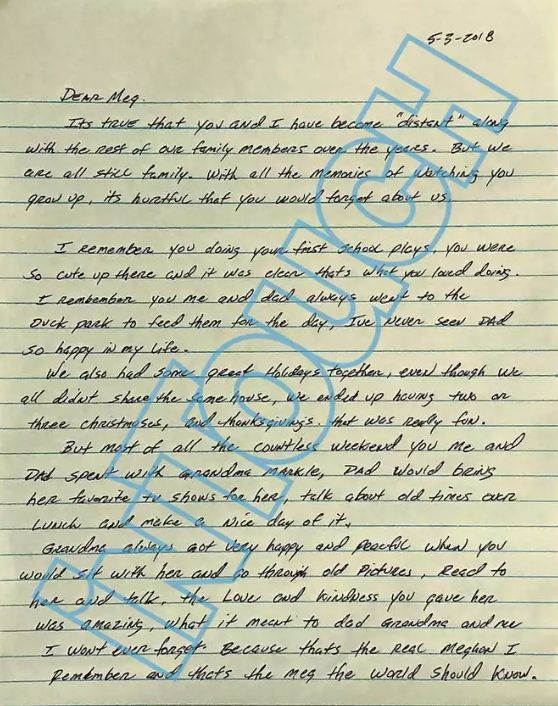 5-3-2018
Dear Meg.
Its true that you and I have become "distant" along
with the rest of our family members over the years. But we
are all still family. With all the memories of watching you
grow up, its hurtful that you would forget about us.
I remember you doing your first school plays, you were
so cute up there and it was clear thats what you loved doing.
I remember you me and dad always went to the
Duck park to feed them for the day, Ive never seen Dad
so happy in my life.
We also had some great Holidays together, even though we
all didnt share the same house, we ended up having two or
three christmases, and thanksgivings. that was really fun.
But most of all the countless weekend you me and
Dad spent with Grandma Markle, Dad would bring
her favorite tv shows for her, talk about old times over
Lunch and make a nice day of it.
Grandma always got very happy and peacful when you
would sit with her and go through old Pictures, Read to
her and talk, the Love and kindness you gave her
was amazing, what it meant to dad Grandma and me
I wont ever forget. Because thats the real Meghan I
Remember and thats the meg the world should know.
INTOUCH